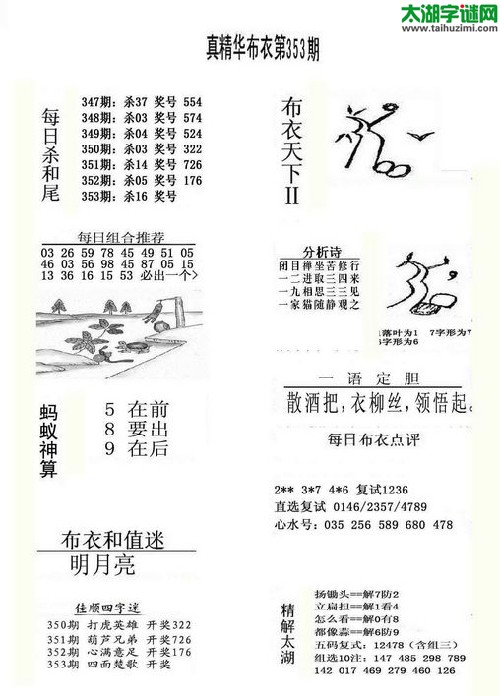 太湖字谜网
www.taihuzimi.com
真精华布衣第353期
每日杀和尾
347期：杀37 奖号 554
348期：杀03 奖号 574
349期：杀04 奖号 524
350期：杀03 奖号 322
351期：杀14 奖号 726
352期：杀05 奖号 176
353期：杀16 奖号
布衣天下II
每日组合推荐
03 26 59 78 45 49 51 05
46 03 56 98 45 87 05 15
13 36 16 15 53 必出一个>
分析诗
闭目禅坐苦修行
一二进取三四来
一九相思三三见
一家猫随静观之
落叶为1 7字形为7
字形为6
蚂蚁神算
5 在前
8 要出
9 在后
一语定胆
散酒把,衣柳丝,领悟起。
每日布衣点评
2** 3*7 4*6 复试1236
直选复试 0146/2357/4789
心水号：035 256 589 680 478
布衣和值迷
明月亮
佳顺四字迷
350期 打虎英雄 开奖322
351期 葫芦兄弟 开奖726
352期 心满意足 开奖176
353期 四面楚歌 开奖
精解太湖
扬锄头==解7防2
立扁担==解1看4
怎么看==解0有8
都像蒜==解6防9
五码复式：12478（含组三）
组选10注：147 485 298 789
142 017 469 279 460 126